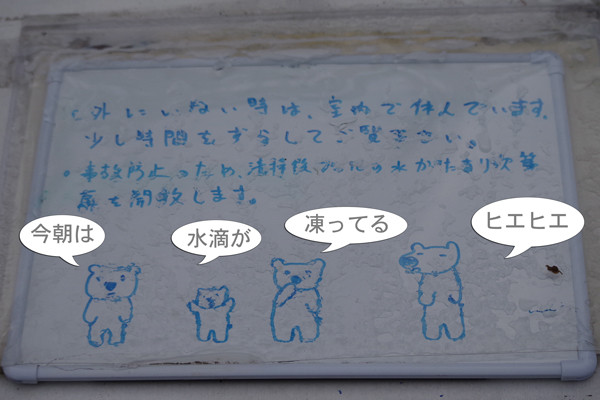 ・外にいない時は、室内で休んでいます。
少し時間をずらしてご覧下さい。
・事故防止のため、清掃後の水がたまり次第
扉を開放します。
今朝は
水滴が
凍ってる
ヒエヒエ